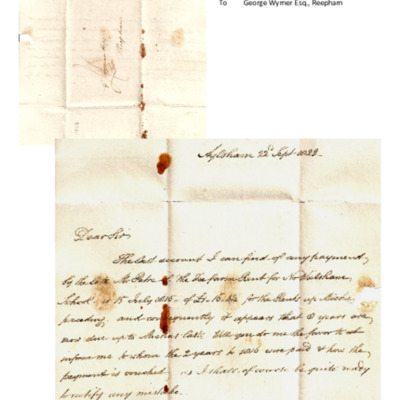 To George Wymer Esq., Reepham
Reepham
Aylsham 22d Sept 1822
Dear Sir
The last account I can find of any payment
by the late Mr of the Fee farm Rent for No Walsham
School is 15 July 1816 of for the Rents up Michs
preceding, and consequently it appears that 6 years are
now due up to Michas Will you do me the favor to
inform me to whom the 2 years to 1816 were paid & how the
payment is vouched as I shall of course be quite ready
to rectify any mistake